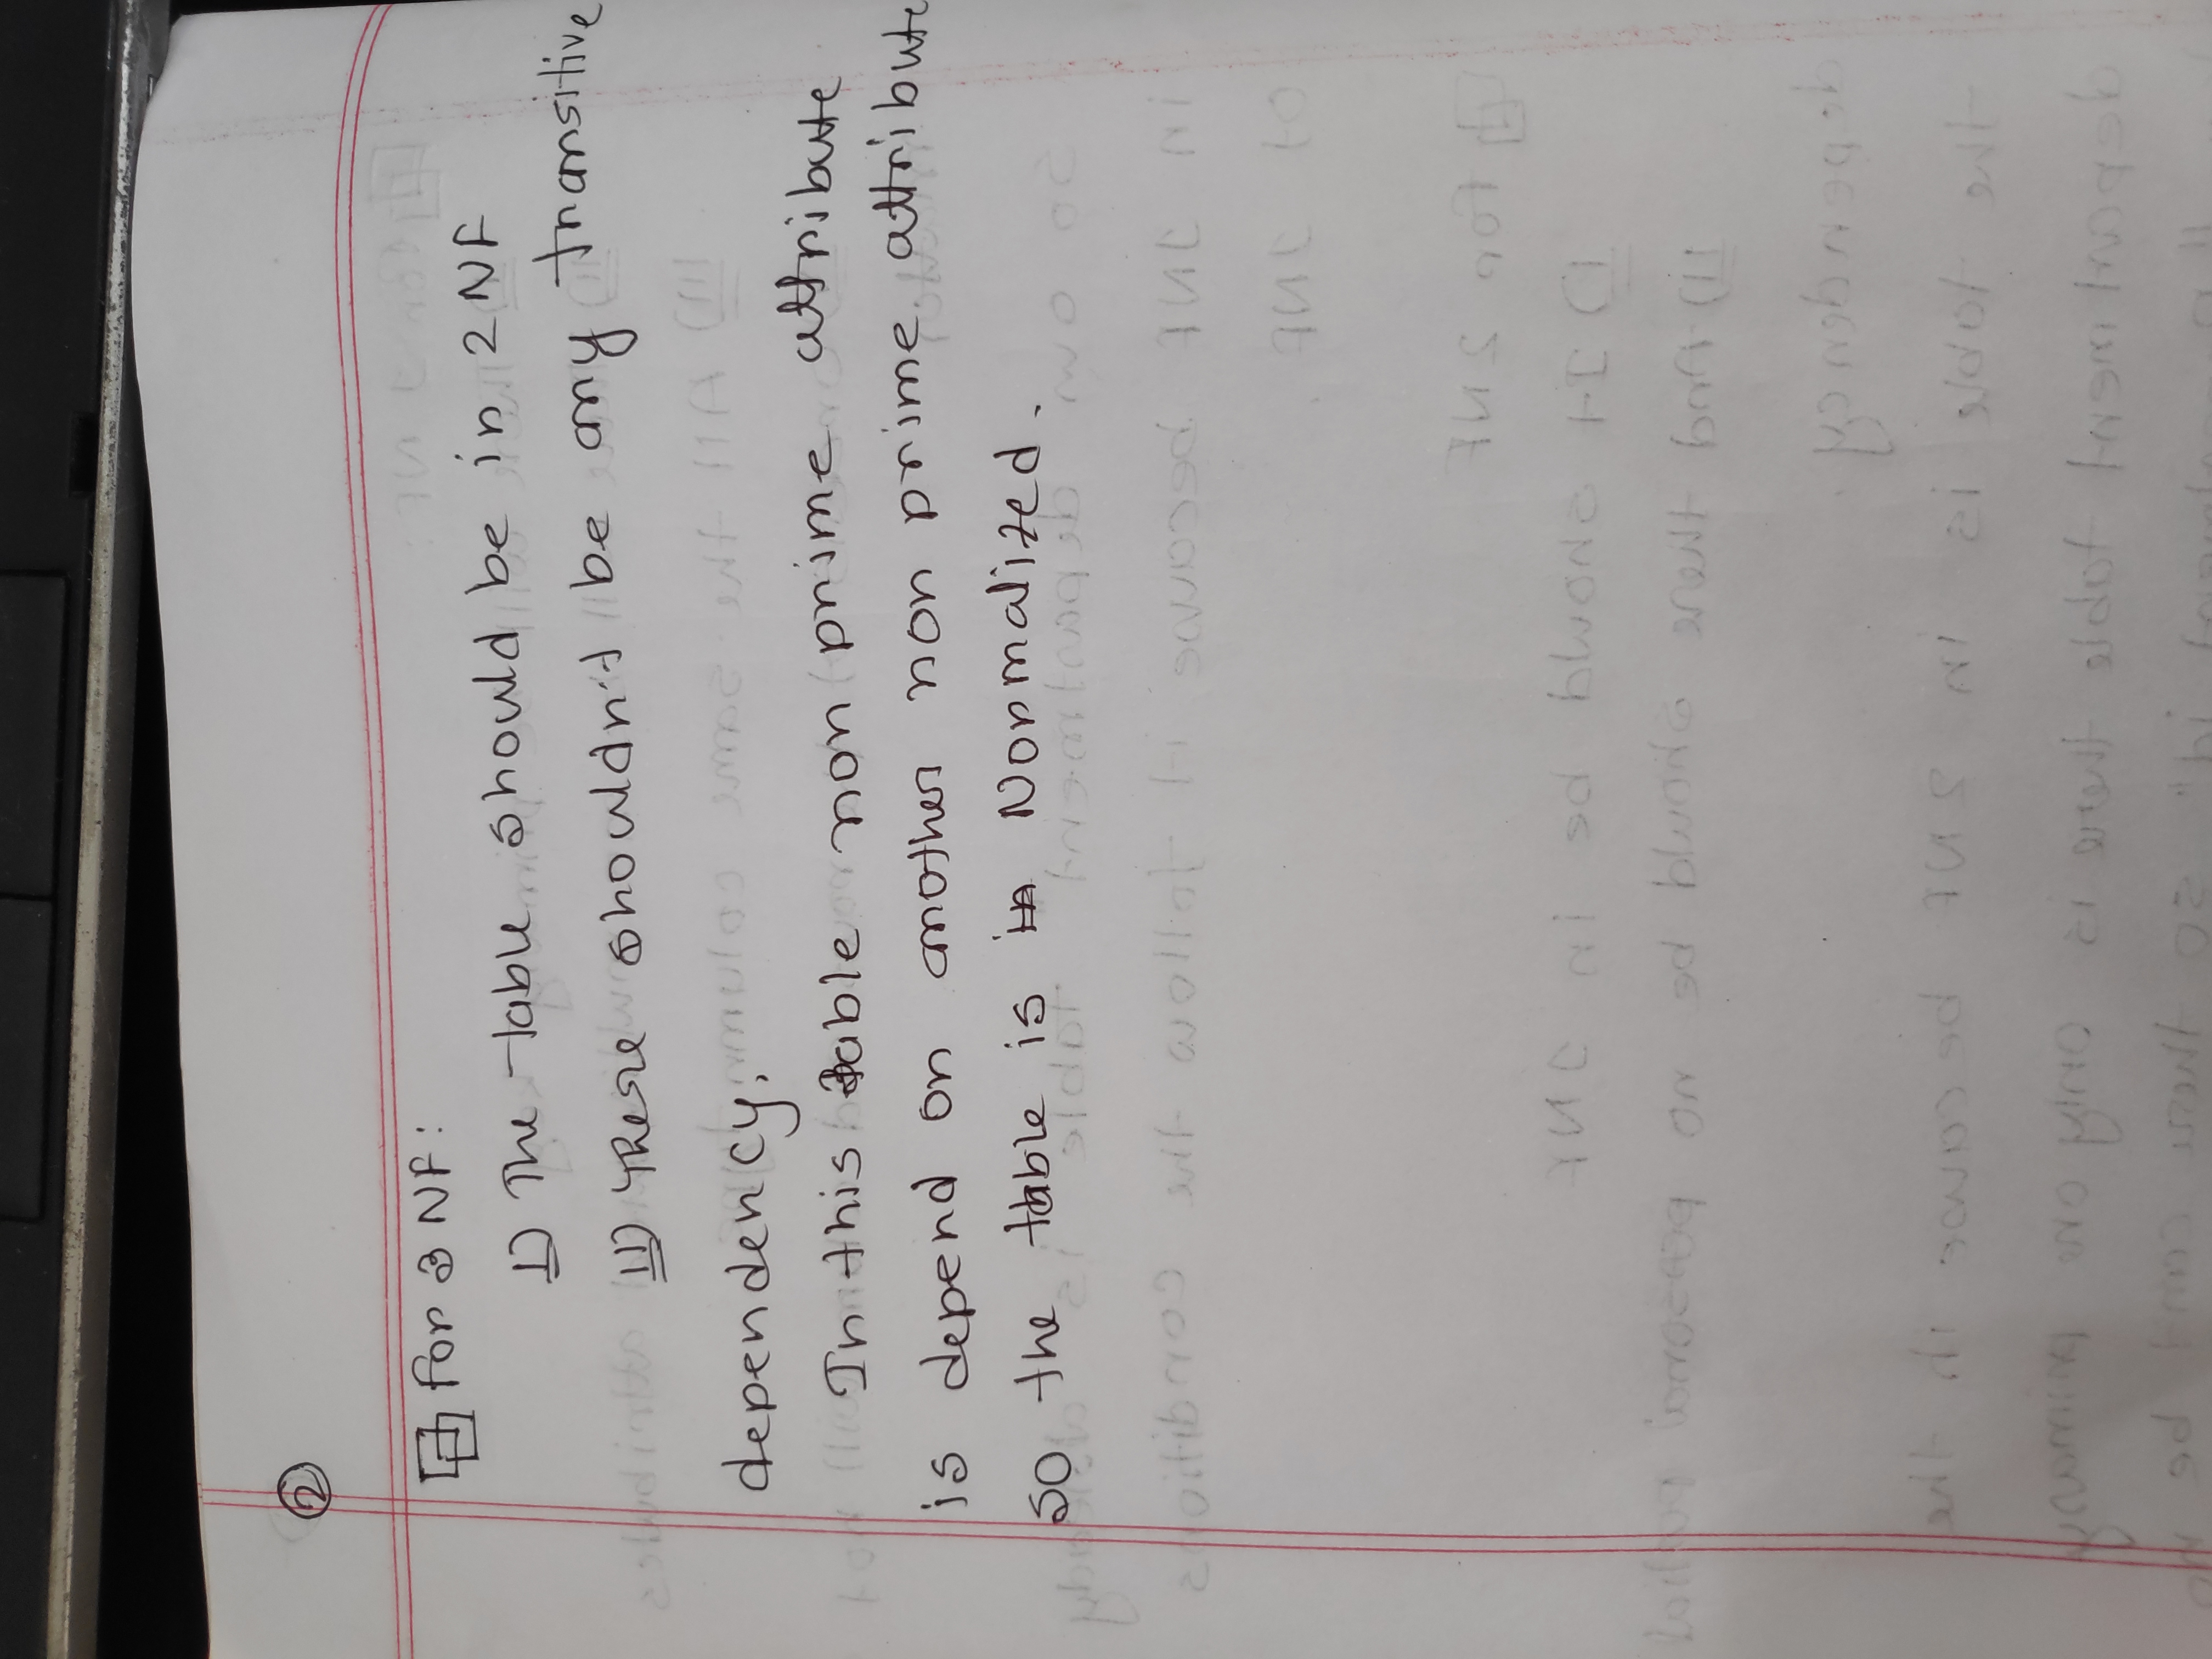 2
for 3 NF:
I) The table should be in 2 NF
II) There shouldn't be any transitive
dependency.
In this table non prime attribute
is depend on another non prime attribute
so the table is in Normalized.